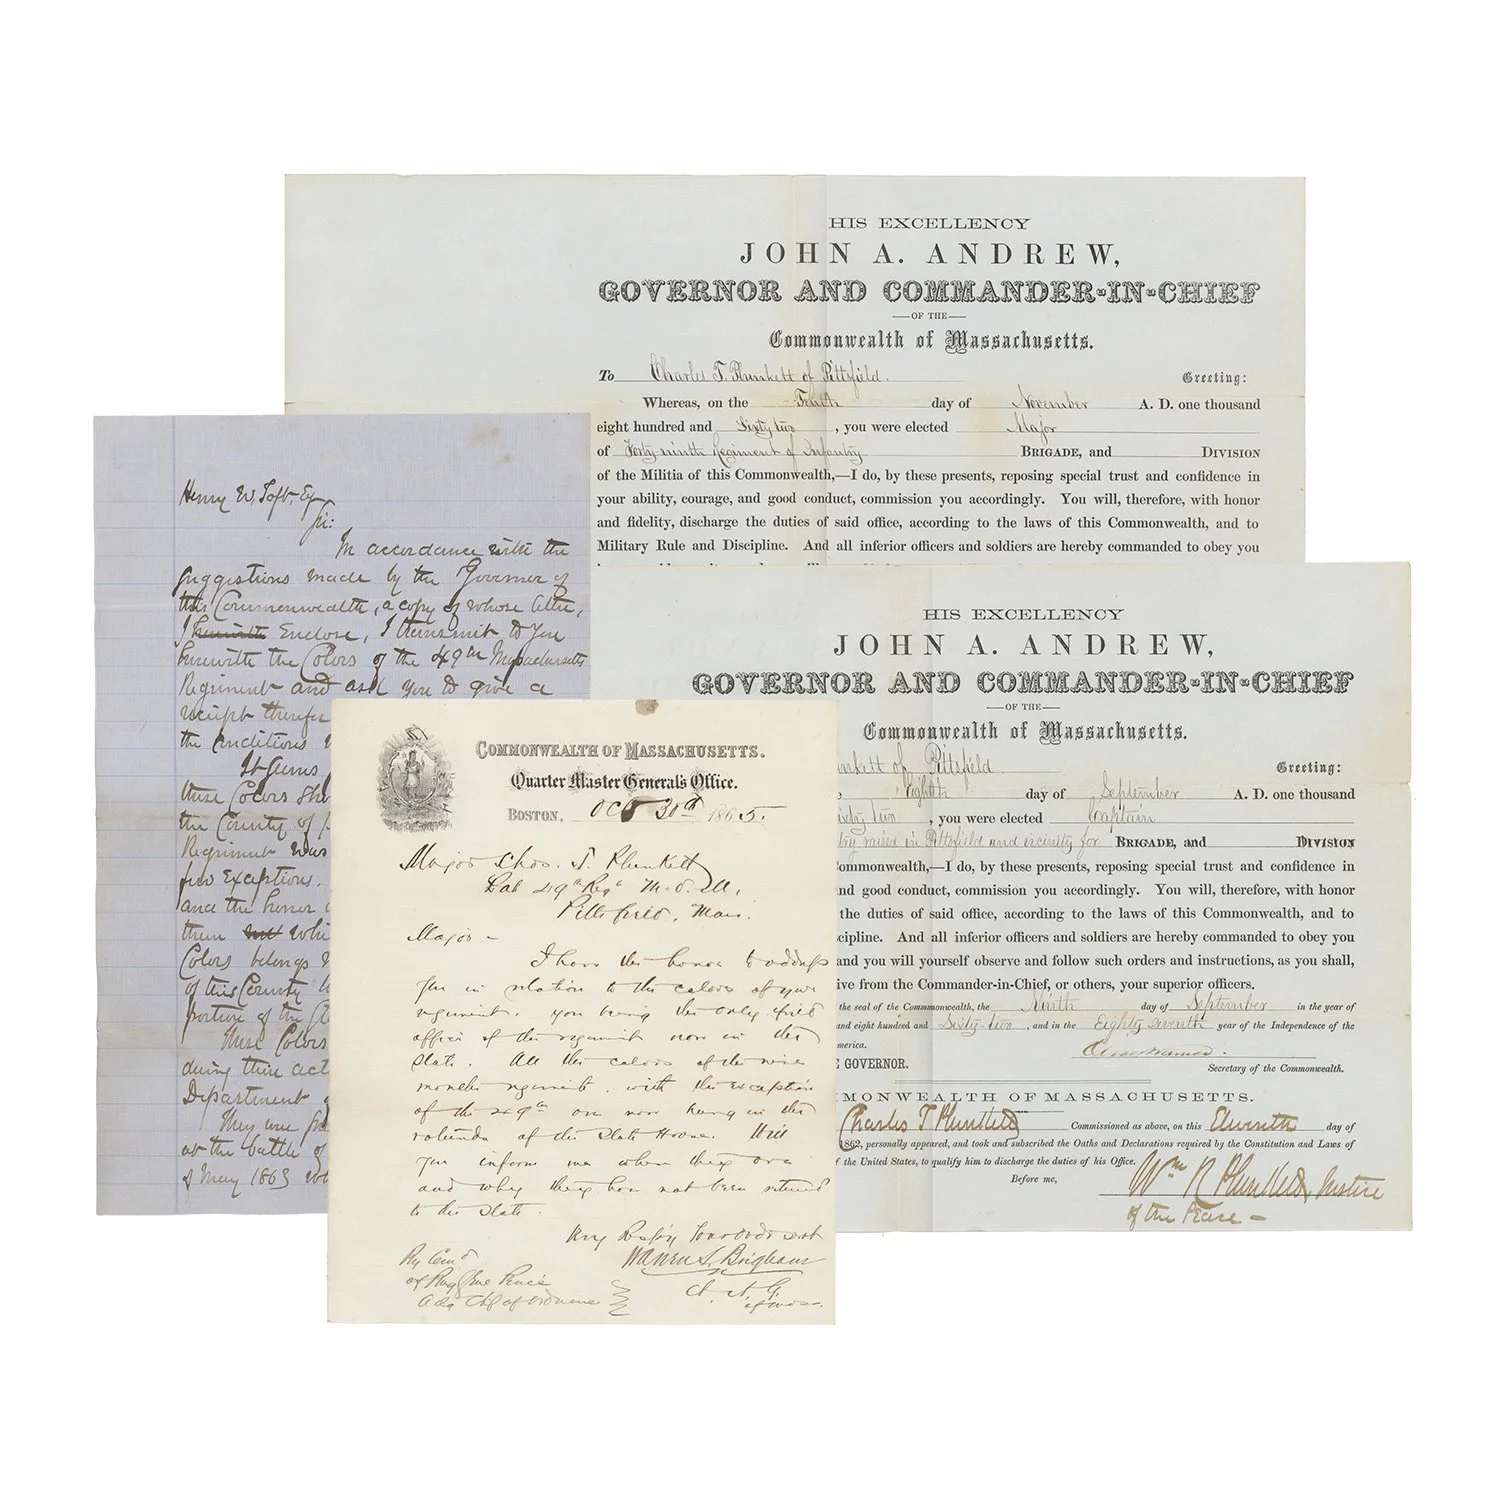 HIS EXCELLENCY
JOHN A. ANDREW,
GOVERNOR AND COMMANDER-IN-CHIEF
—OF THE—
Commonwealth of Massachusetts.
To Charles T. Plunkett of Pittsfield. Greeting:
Whereas, on the Tenth day of November A. D. one thousand
eight hundred and Sixty two, you were elected Major
of Forty-ninth Regiment of Infantry BRIGADE, and DIVISION
of the Militia of this Commonwealth,—I do, by these presents, reposing special trust and confidence in
your ability, courage, and good conduct, commission you accordingly. You will, therefore, with honor
and fidelity, discharge the duties of said office, according to the laws of this Commonwealth, and to
Military Rule and Discipline. And all inferior officers and soldiers are hereby commanded to obey you
Henry W. Taft Esq
Sir:
In accordance with the
suggestions made by the Governor of
this Commonwealth, a copy of whose letter,
I herewith Enclose, I transmit to you
herewith the Colors of the 49th Massachusetts
Regiment and ask you to give a
receipt therefor
the conditions
It seems
these Colors sh
the County of
Regiment was
few Exceptions.
ance the honor
them whi
Colors belongs
of this County
portion of the
These Colors
during their act
Department
They were
at the battle of
May 1863
HIS EXCELLENCY
JOHN A. ANDREW,
GOVERNOR AND COMMANDER-IN-CHIEF
—OF THE—
Commonwealth of Massachusetts.
nkett of Pittsfield Greeting:
Eighth day of September A. D. one thousand
ixty two, you were elected Captain
raised in Pittsfield and vicinity for BRIGADE, and DIVISION
ommonwealth,—I do, by these presents, reposing special trust and confidence in
nd good conduct, commission you accordingly. You will, therefore, with honor
the duties of said office, according to the laws of this Commonwealth, and to
cipline. And all inferior officers and soldiers are hereby commanded to obey you
and you will yourself observe and follow such orders and instructions, as you shall,
ive from the Commander-in-Chief, or others, your superior officers.
the seal of the Commonwealth, the Ninth day of September in the year of
and eight hundred and Sixty-two, and in the Eighty seventh year of the Independence of the
merica.
GOVERNOR.
Secretary of the Commonwealth.
MONWEALTH OF MASSACHUSETTS.
Charles T Plunkett Commissioned as above, on this Eleventh day of
1862, personally appeared, and took and subscribed the Oaths and Declarations required by the Constitution and Laws of
f the United States, to qualify him to discharge the duties of his Office.
Before me,
Wm R Plunkett Justice
of the Peace —
COMMONWEALTH OF MASSACHUSETTS.
Quarter Master General's Office.
BOSTON, Oct 30th 1865.
Major Chas. T. Plunkett
Late 49th Regt M.V.M.
Pittsfield, Mass.
Major -
I have the honor to address
you in relation to the colors of your
regiment. you being the only field
officer of the regiment now in the
State. All the colors of the nine
months regiments, with the exception
of the 49th are now hung in the
rotunda of the State House. Will
you inform me where they are
and why they have not been returned
to the State.
Very Respy Your obdt servt
Warren S. Bingham
By Comd
of